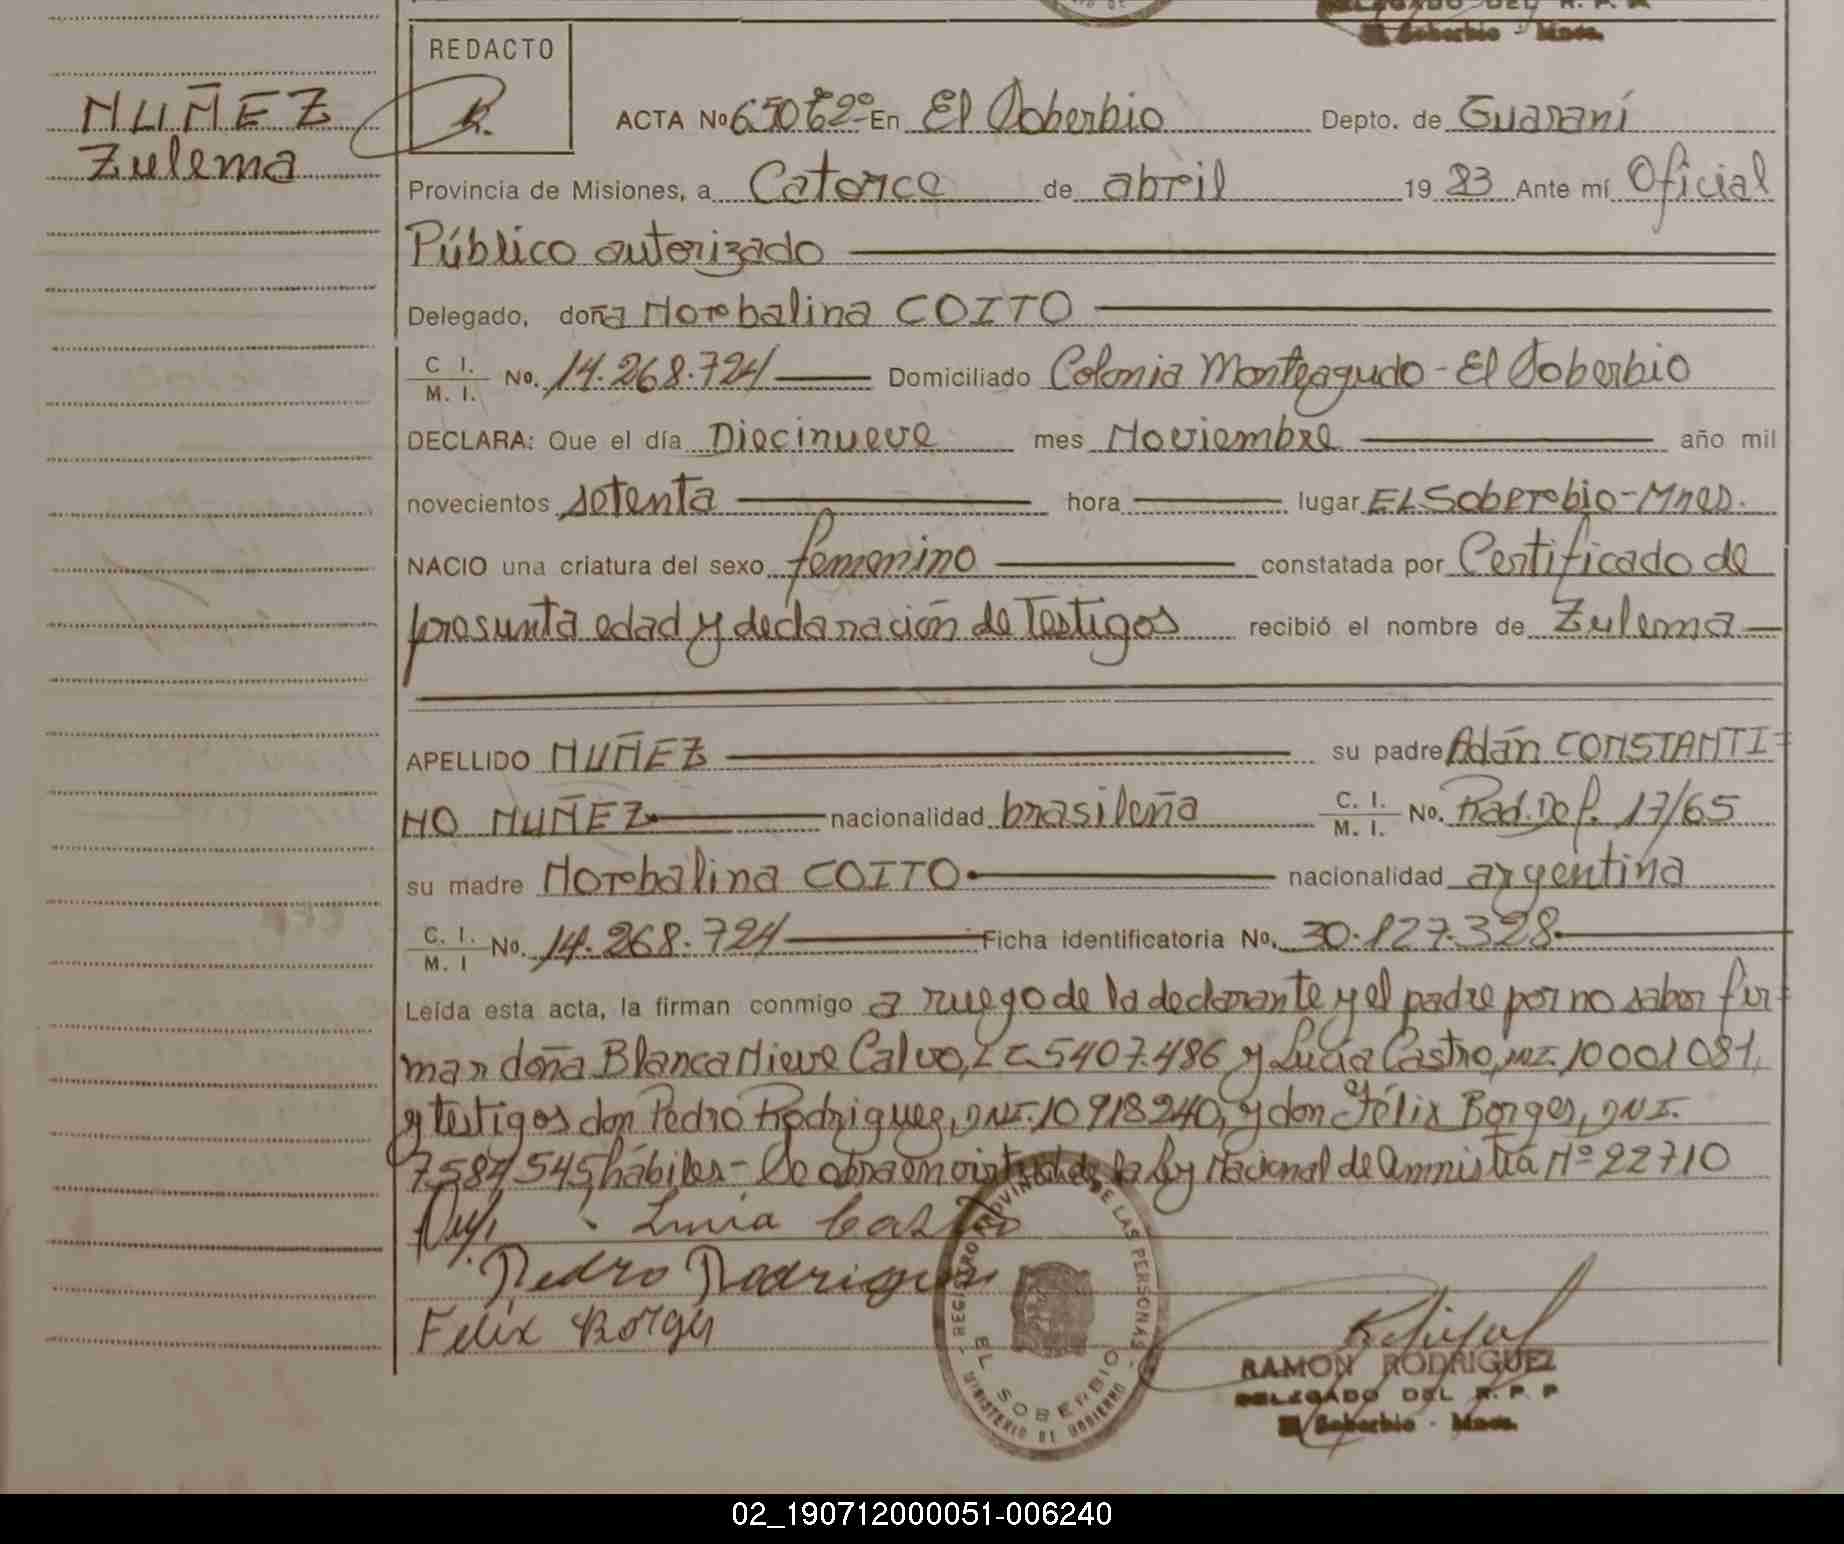 DELEGADO DEL R. P. P
El Soberbio - Mnes.
REDACTO
NUÑEZ
Zulema
ACTA Nº 650 Tº 2º En El Soberbio Depto. de Guaraní
Provincia de Misiones, a Catorce de abril 19 83 Ante mí Oficial
Público autorizado
Delegado, doña Norbalina COITO
C. I. M. I. No. 14.268.724 Domiciliado Colonia Monteagudo - El Soberbio
DECLARA: Que el día Diecinueve mes Noviembre año mil
novecientos setenta hora lugar EL Soberbio - Mnes.
NACIO una criatura del sexo femenino constatada por Certificado de
presunta edad y declaración de Testigos recibió el nombre de Zulema
APELLIDO NUÑEZ su padre Adán CONSTANTI=
NO NUÑEZ nacionalidad brasileña C. I. M. I. No. Rad. Def. 17/65
su madre Norbalina COITO nacionalidad argentina
C. I. M. I No. 14.268.724 Ficha identificatoria No. 30.127.328
Leída esta acta, la firman conmigo a ruego de la declarante y el padre por no saber fir=
mar doña Blanca Nieve Calvo, L C. 5407.486 y Lucía Castro, 10001081,
y testigos don Pedro Rodriguez, DNI. 10918240, y don Félix Borges, DNI.
7584545 hábiles - Se obra en virtud de la Ley Nacional de Amnistía Nº 22710
Lucia Castro
Pedro Rodriguez
Felix Borges
REGISTRO PROVINCIAL DE LAS PERSONAS
EL SOBERBIO
MINISTERIO DE GOBIERNO
RAMON RODRIGUEZ
DELEGADO DEL R. P. P
El Soberbio - Mnes.
02_190712000051-006240